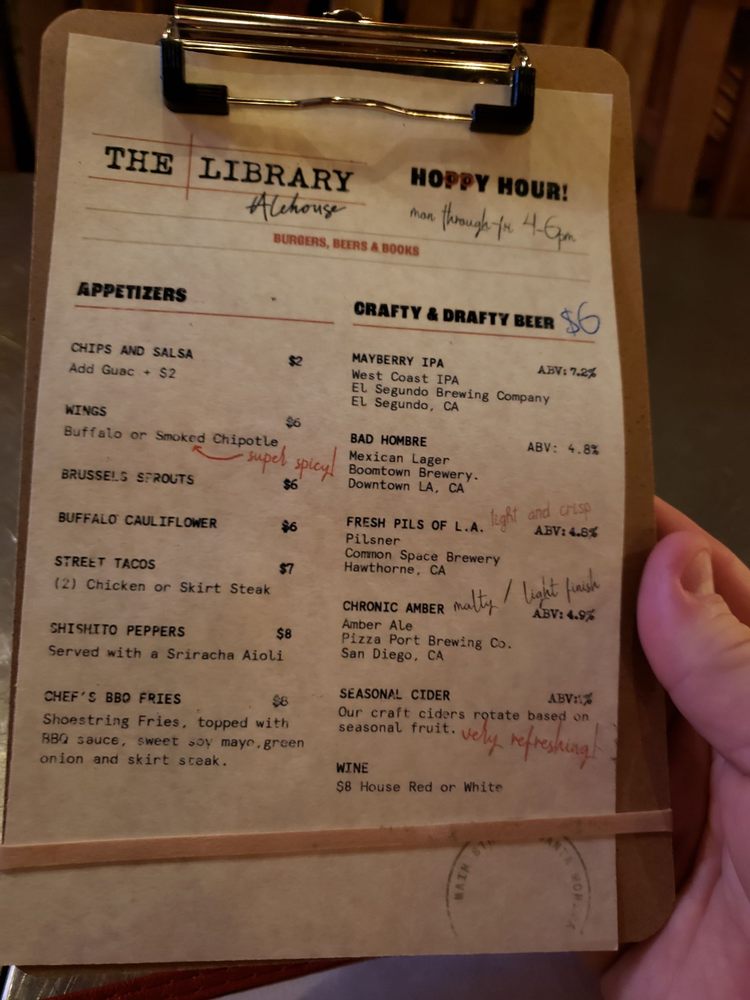 THE LIBRARY
Alehouse
HOPPY HOUR!
mon through fri 4-6pm
BURGERS, BEERS & BOOKS
APPETIZERS
CHIPS AND SALSA $2
Add Guac + $2
WINGS $6
Buffalo or Smoked Chipotle
super spicy!
BRUSSELS SPROUTS $6
BUFFALO CAULIFLOWER $6
STREET TACOS $7
(2) Chicken or Skirt Steak
SHISHITO PEPPERS $8
Served with a Sriracha Aioli
CHEF'S BBQ FRIES $8
Shoestring Fries, topped with
BBQ sauce, sweet soy mayo, green
onion and skirt steak.
CRAFTY & DRAFTY BEER $6
MAYBERRY IPA ABV: 7.2%
West Coast IPA
El Segundo Brewing Company
El Segundo, CA
BAD HOMBRE ABV: 4.8%
Mexican Lager
Boomtown Brewery.
Downtown LA, CA
light and crisp
FRESH PILS OF L.A. ABV: 4.8%
Pilsner
Common Space Brewery
Hawthorne, CA
malty / light finish
CHRONIC AMBER ABV: 4.9%
Amber Ale
Pizza Port Brewing Co.
San Diego, CA
SEASONAL CIDER ABV: %
Our craft ciders rotate based on
seasonal fruit.
very refreshing!
WINE
$8 House Red or White
MAIN